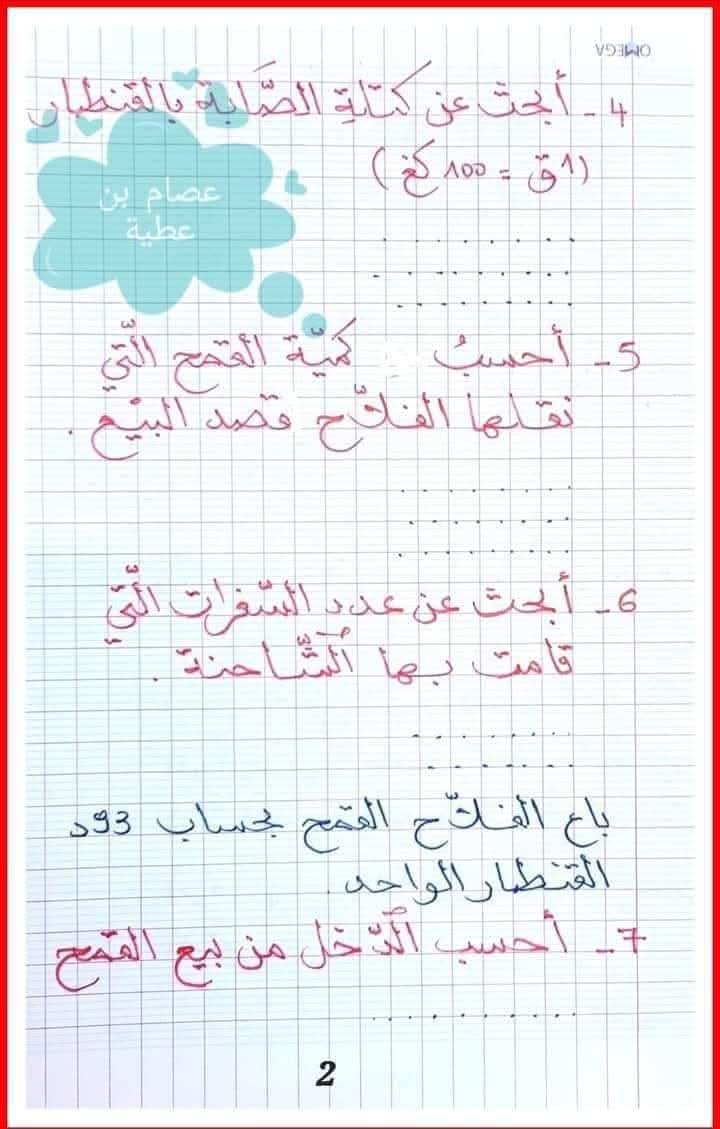 OMEGA
4 - أبحث عن كتلة الصَّابة بالقنطار
(1ق = 100 كغ)
عصام بن
عطية
5 - أحسبُ كميّة القمح الّتي
نقلها الفلاّح قصد البيْع .
6 - أبحث عن عدد السّفرات الّتي
قامت بها ٱلشّاحنة .
باع الفلاّح القمح بحساب 93د
القنطار الواحد .
7 - أحسب ٱلدّخل من بيع القمح
2